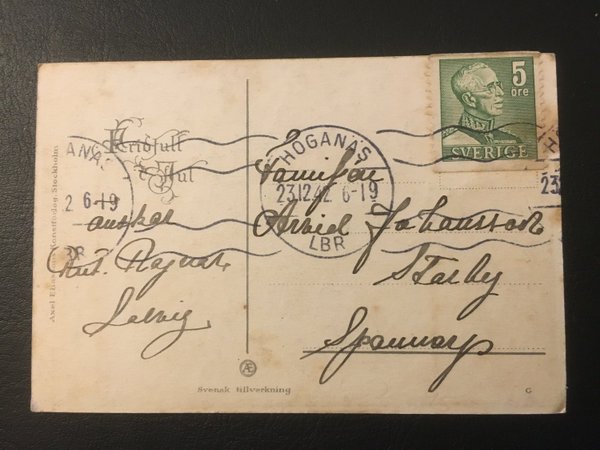 Fridfull
Jul
önskar
Familjen
Arvid Johansson
Starby
Spannarp
5
öre
SVERIGE
HÖGANÄS
23.12.42. 6-19
LBR
ANÄS
2 6-19
Axel Eliassons Konstförlag, Stockholm
Svensk tillverkning
Æ
G
23